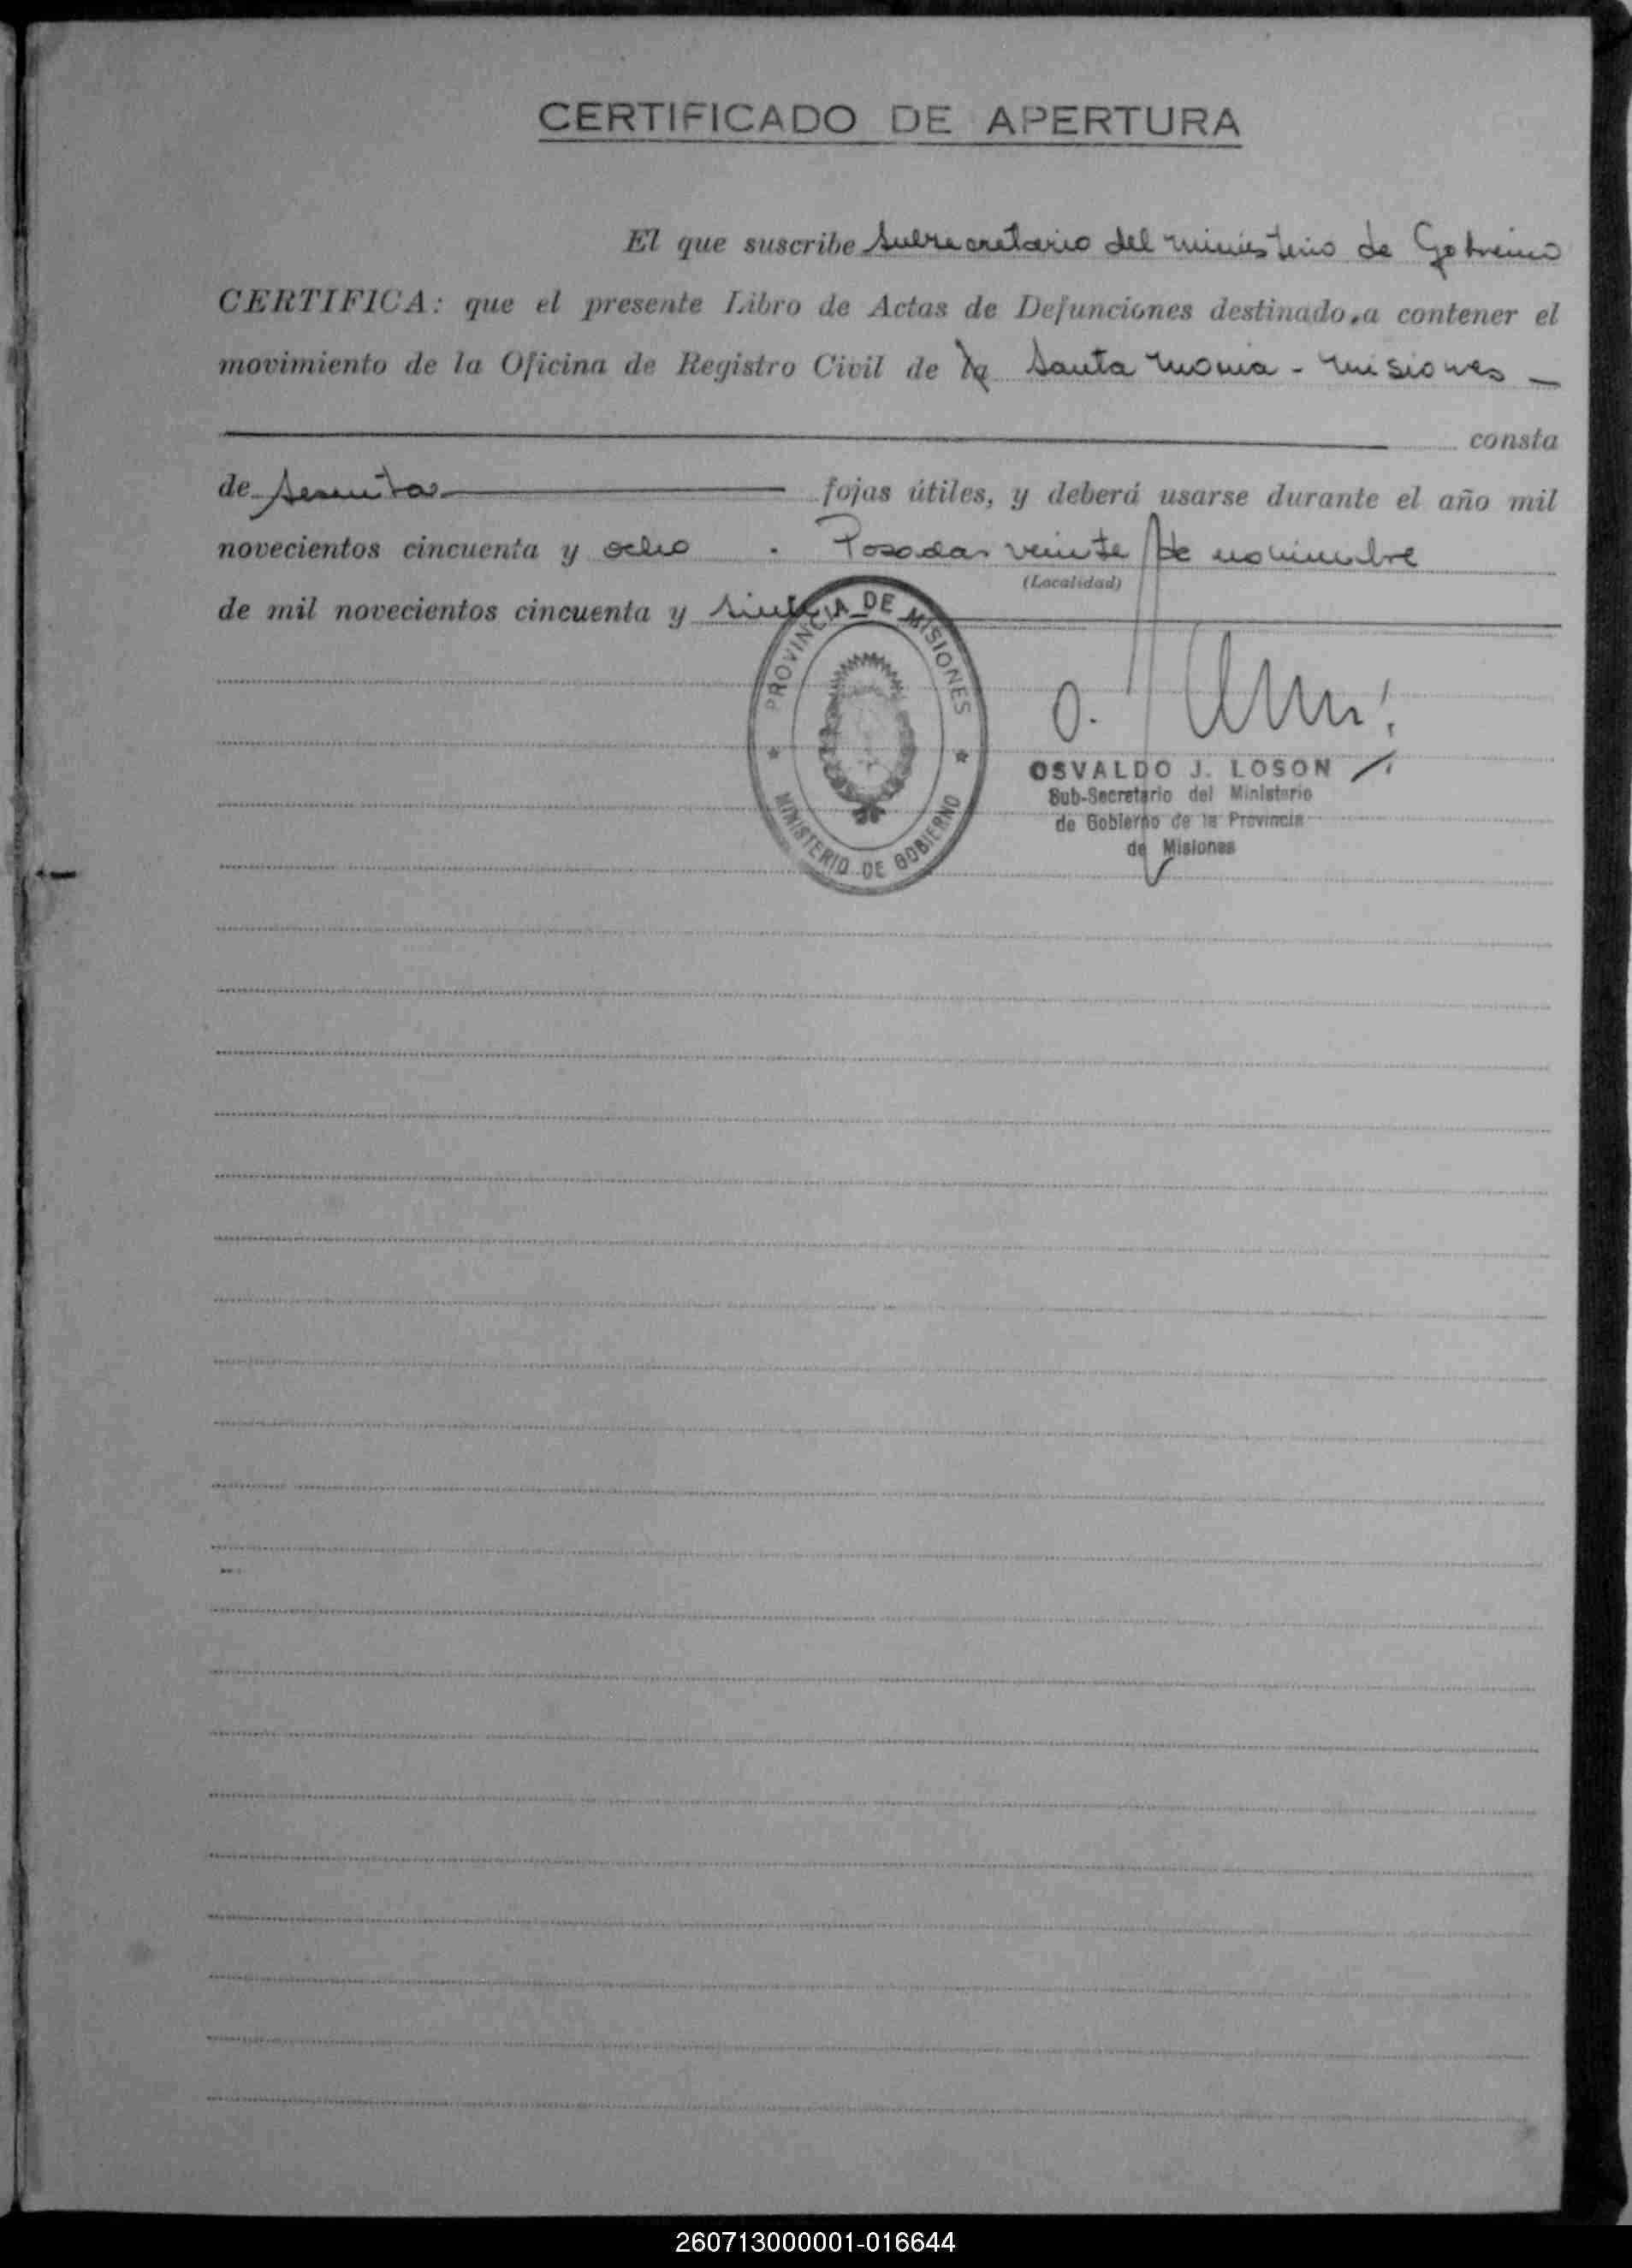 CERTIFICADO DE APERTURA
El que suscribe Subsecretario del ministerio de Gobierno
CERTIFICA: que el presente Libro de Actas de Defunciones destinado a contener el
movimiento de la Oficina de Registro Civil de Santa Maria - Misiones -
consta
de sesenta fojas útiles, y deberá usarse durante el año mil
novecientos cincuenta y ocho . Posadas veinte de noviembre
(Localidad)
de mil novecientos cincuenta y siete
PROVINCIA DE MISIONES
MINISTERIO DE GOBIERNO
OSVALDO J. LOSON
Sub-Secretario del Ministerio
de Gobierno de la Provincia
de Misiones
260713000001-016644